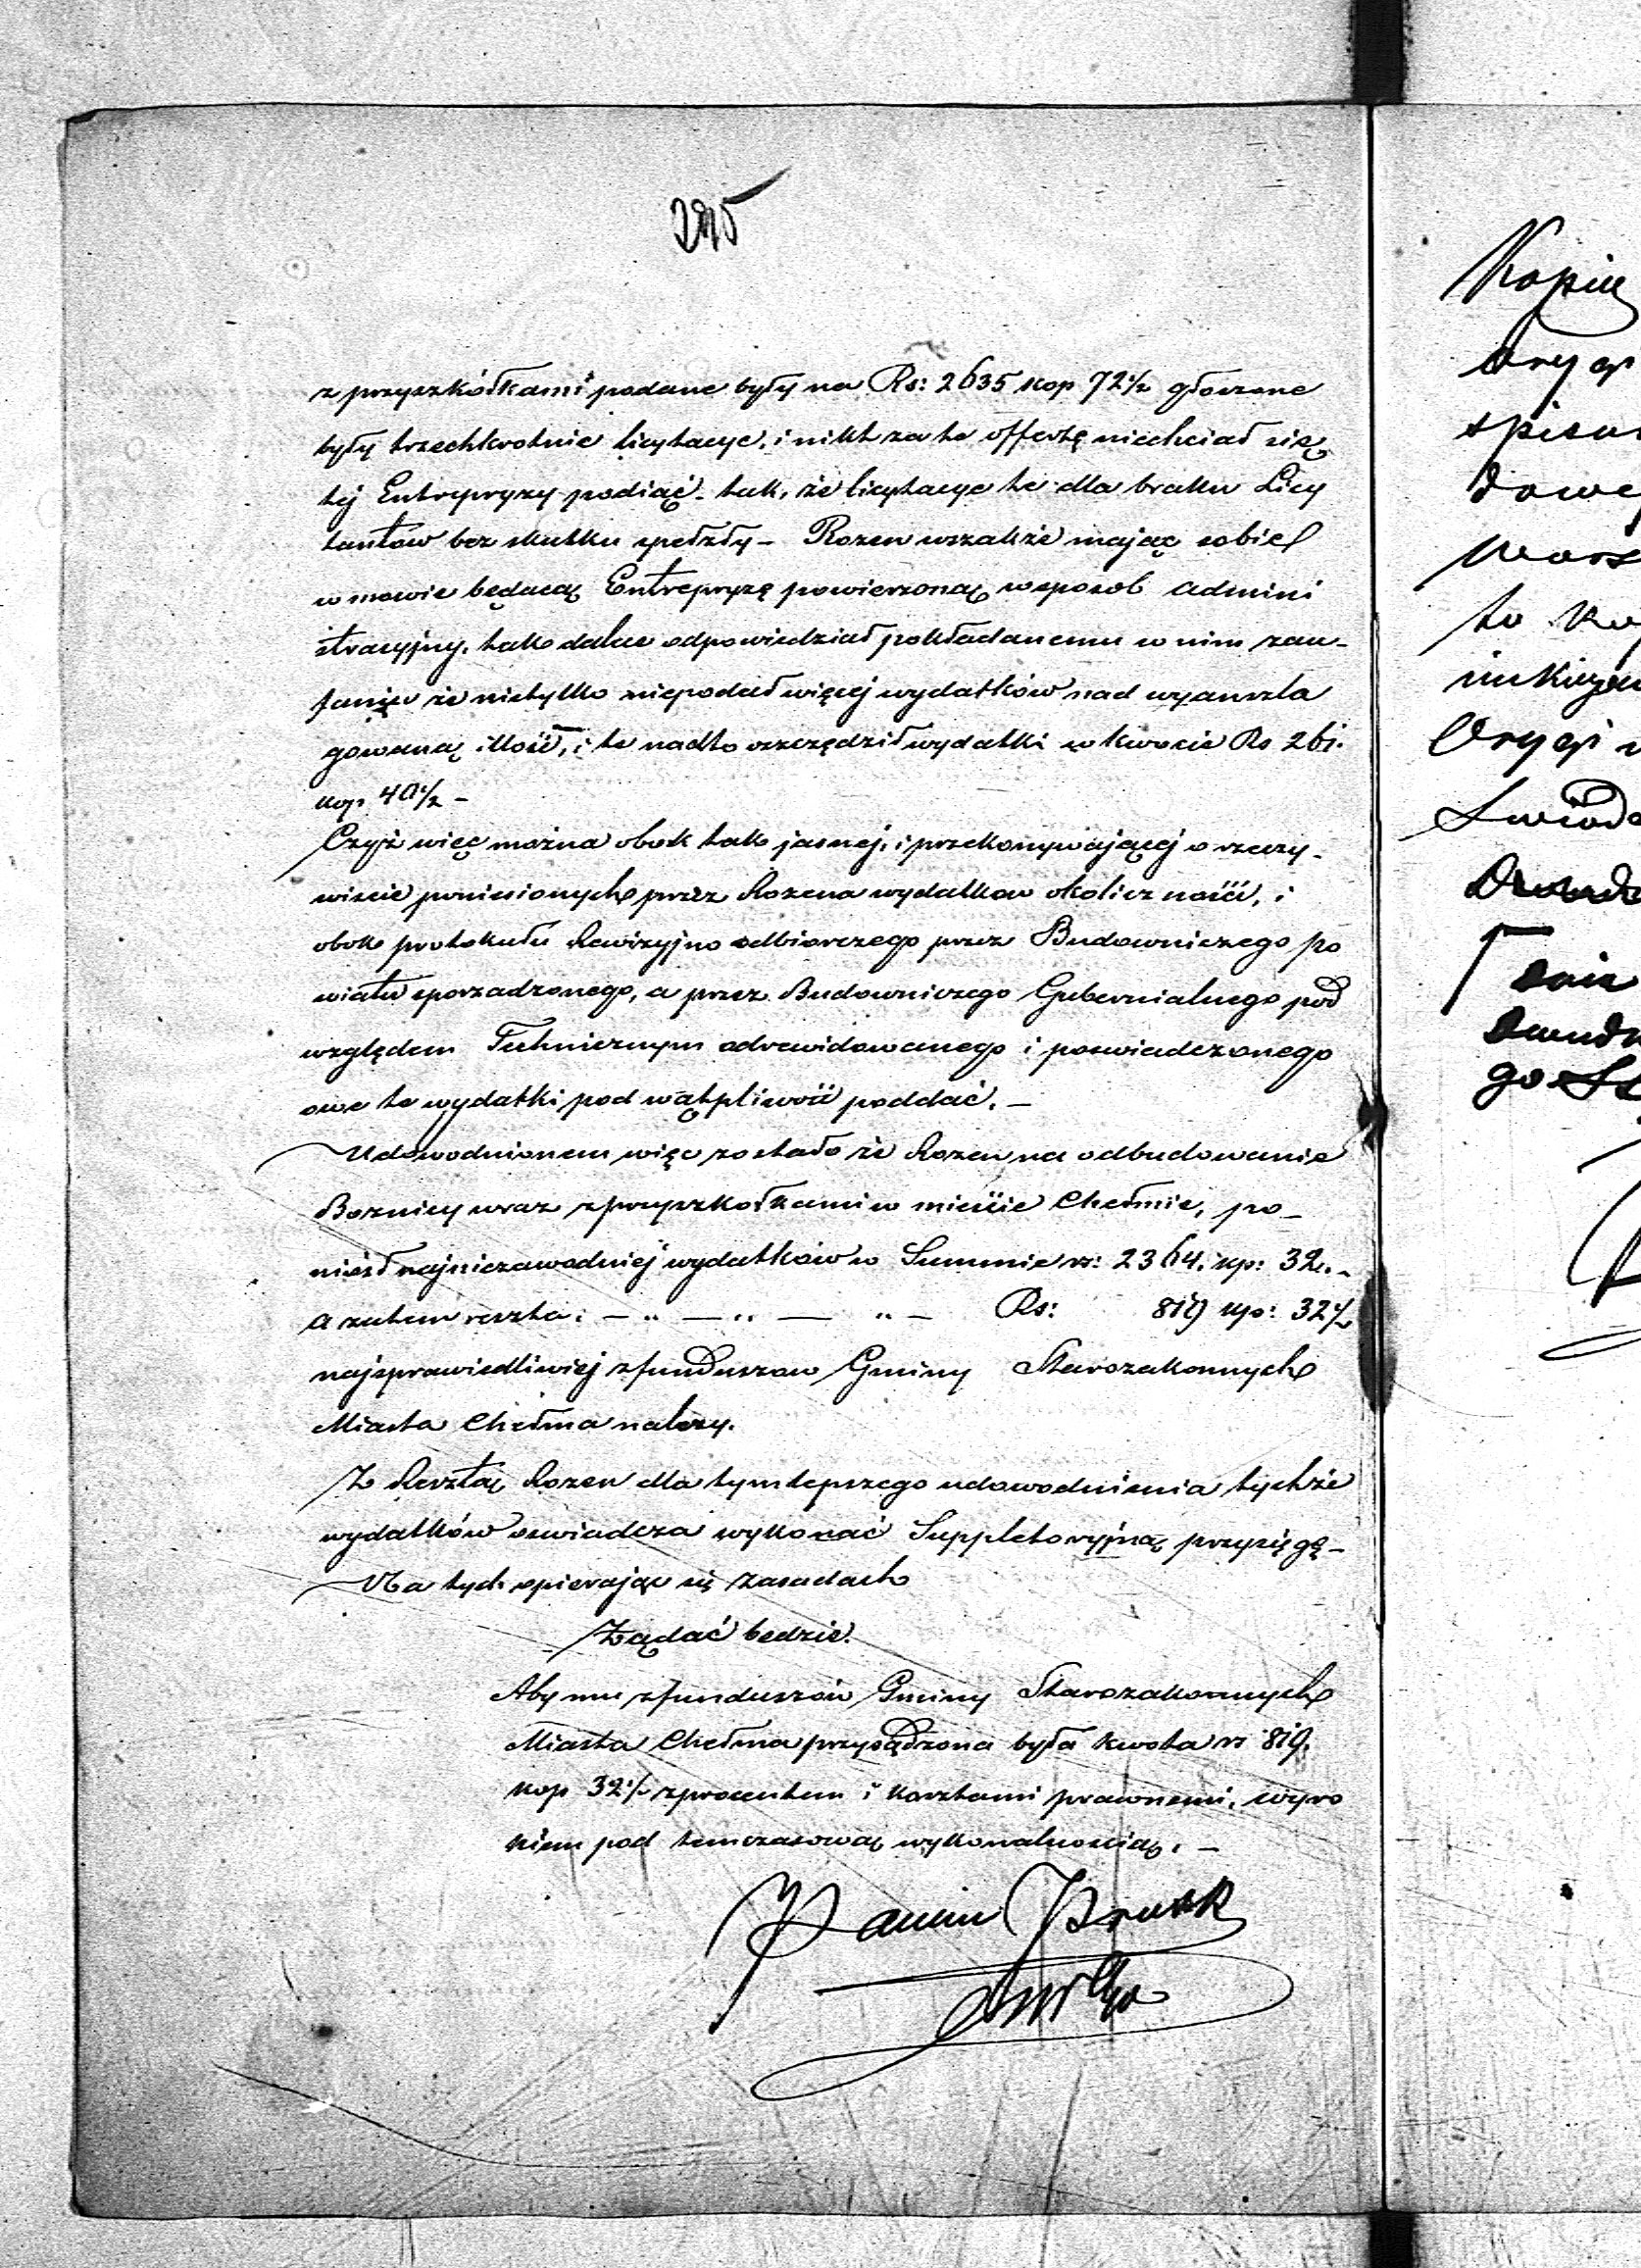 z przyszkółkami podane były na Rs: 2635 kop 72½ głoszone
były trzechkrotnie licytacye, i nikt za te offertę niechciał się
tej Entrepryzy podjąć - tak, że licytacye te dla braku Licy
tantów bez skutku spełzły - Rozen wszakże mając sobie
w mowie będącą Entrepryzę powierzoną w sposob admini
stracyjny, tak dalece odpowiedział pokładanemu w nim zau-
faniu że nietylko niepodał więcej wydatków nad wyanszla
gowaną illość, i te nadto oszczędził wydatki w kwocie Rs 261.
kop 40½ -
Czyż więc można obok tak jasnej, i przekonywającej o rzeczy-
wiscie poniesionych przez Rozena wydatkow okoliczności, i
obok protokułu Rewizyjno odbiorczego przez Budowniczego po
wiatu sporzadzonego, a przez Budowniczego Gubernialnego pod
względem Technicznym odrewidowanego i poswiadczonego
owe te wydatki pod wątpliwość poddać. -
Udowodnionem więc zostało że Rozen na odbudowanie
Boznicy wraz z przyszkołkami w mieście Chełmie, po-
niosł najniezawodniej wydatków w Summie rs: 2364. kp: 32. -
a zatem reszta: - " - " - " - Rs: 819 kp: 32½
najsprawiedliwiej z funduszow Gminy Starozakonnych
Miasta Chełma należy.
Z Resztą Rozen dla tym lepszego udowodnienia tychże
wydatków oswiadcza wykonać Suppletoryjną przysięgę -
Na tych opierając się zasadach
Żądać bedzie.
Aby mu z funduszów Gminy Starozakonnych
Miasta Chełma przysądzona była kwota rs 819.
kop 32½ z procentem i kosztami prawnemi, wyro
kiem pod temczasową wykonalnoscią. -
Kopię
orygi
to
Orygi